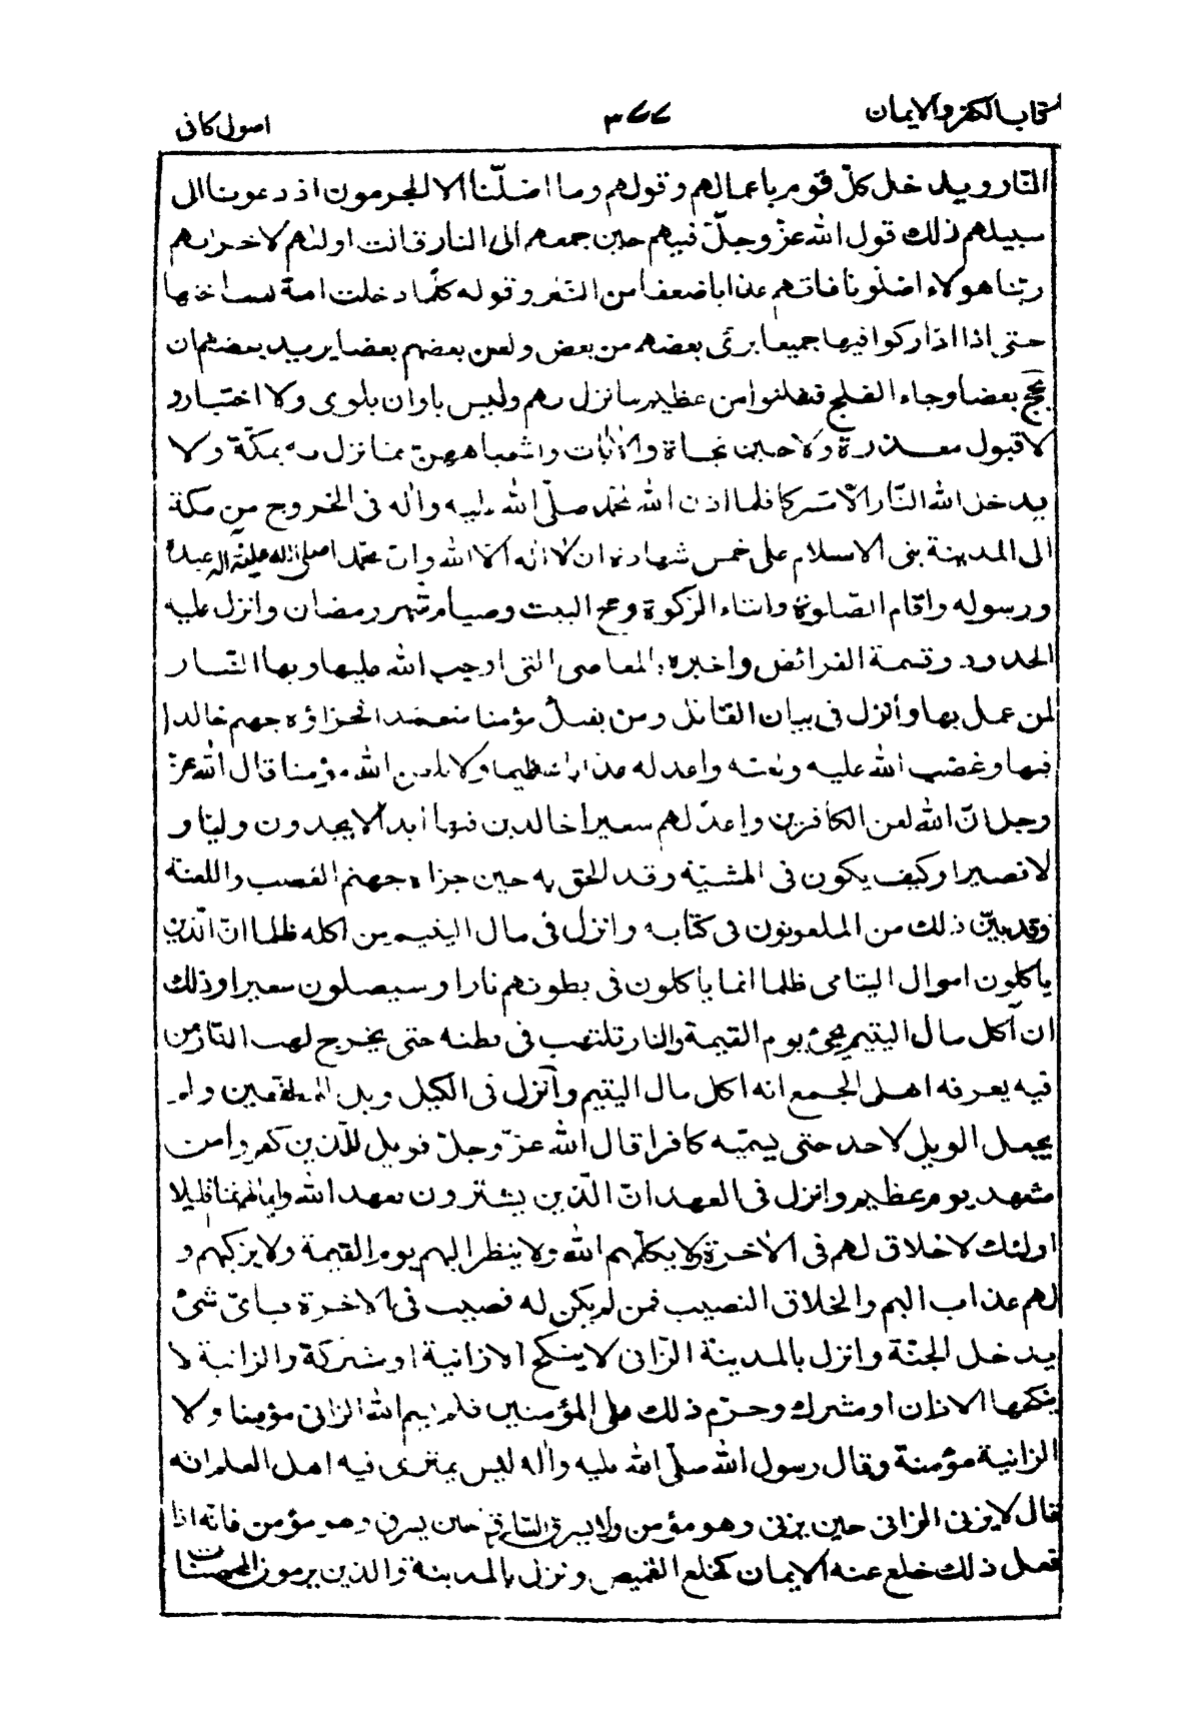 كتاب الكفر والايمان ٣٧٧ اصول كافى
النار ويدخل كلّ قوم باعمالهم وقولهم وما اضلّنا الا المجرمون اذ دعونا الى
سبيلهم ذلك قول الله عزّ وجلّ فيهم حين جمعهم الى النار قالت اولٰهم لاخرٰهم
ربّنا هولاء اضلونا فاتهم عذابا ضعفا من النار وقوله كلّما دخلت امة لعنت اختها
حتى اذا اداركوا فيها جميعا برئ بعضهم من بعض ولعن بعضهم بعضا يريد بعضهم ان
يحجّ بعضا وجاء الفلج فيفلتوا من عظيم ما نزل بهم وليس باوان بلوى ولا اختبار و
لا قبول معذرة ولا حين نجاة والاٰيات واشباههنّ مما نزل به بمكّة ولا
يدخل الله النّار الّا مشركا فلما اذن الله لمحمّد صلّى الله عليه واٰله فى الخروج من مكة
الى المدينة بنى الاسلام على خمس شهادة ان لا اله الّا الله وانّ محمّدا صلى الله عليه وآله عبده
ورسوله واقام الصّلوة وايتاء الزكوة وحج البيت وصيام شهر رمضان وانزل عليه
الحدود وقسمة الفرائض واخبره بالمعاصى التى اوجب الله عليها وبها النّار
لمن عمل بها وأنزل فى بيان القاتل ومن يقتل مؤمنا متعمّدا فجزاؤه جهنم خالدا
فيها وغضب الله عليه ولعنه واعد له عذابا عظيما ولا يلعن الله مؤمنا قال الله عزّ
وجل انّ الله لعن الكافرين واعدّ لهم سعيرا خالدين فيها ابدا لا يجدون وليّا و
لا نصيرا وكيف يكون فى المشيّة وقد الحق به حين جزاه جهنم الغضب واللعنة
وقد بيّن ذلك من الملعونون فى كتابه وانزل فى مال اليتيم من اكله ظلما انّ الّذين
ياكلون اموال اليتامى ظلما انما ياكلون فى بطونهم نارا وسيصلون سعيرا وذلك
ان آكل مال اليتيم يجئ يوم القيمة والنار تلتهب فى بطنه حتى يخرج لهب النّار من
فيه يعرفه اهل الجمع انه اكل مال اليتيم وأنزل فى الكيل ويل للمطفّفين ولم
يجعل الويل لاحد حتى يسمّيه كافرا قال الله عزّ وجلّ فويل للّذين كفروا من
مشهد يوم عظيم وانزل فى العهد انّ الّذين يشترون بعهد الله وايمانهم ثمنا قليلا
اولئك لا خلاق لهم فى الاٰخرة ولا يكلّمهم الله ولا ينظر اليهم يوم القيمة ولا يزكيهم و
لهم عذاب اليم والخلاق النصيب فمن لم يكن له نصيب فى الاخرة فباىّ شئ
يدخل الجنّة وانزل بالمدينة الزّانى لا ينكح الا زانية او مشركة والزانية لا
ينكحها الا زان او مشرك وحرّم ذلك على المؤمنين فلم يسم الله الزانى مؤمنا ولا
الزانية مؤمنة وقال رسول الله صلّى الله عليه واٰله ليس يمترى فيه اهل العلم انه
قال لا يزنى الزانى حين يزنى وهو مؤمن ولا يسرق السّارق حين يسرق وهو مؤمن فانّه اذا
فعل ذلك خلع عنه الايمان كخلع القميص ونزل بالمدينة والذين يرمون المحصنات